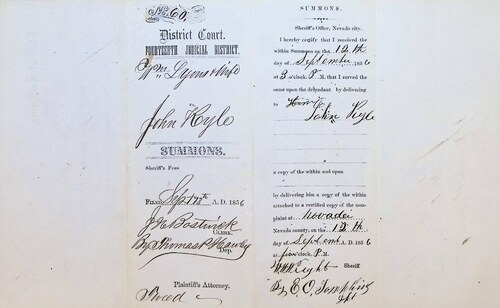 No. 60.
District Court.
FOURTEENTH JUDICIAL DISTRICT.
Wm Lyons & wife
John Kyle
SUMMONS.
Sheriff's Fees
FILED Sept 12th A. D. 1856
J H Bostwick
CLERK.
By Thomas P Hawley
Dep.
Plaintiff's Attorney.
SUMMONS.
Sheriff's Office, Nevada city.
I hereby certify that I received the
within Summons on the 12th
day of September 1856
at 3 o'clock, P. M. that I served the
same upon the defendant by delivering
to
John Kyle
a copy of the within and upon
by delivering him a copy of the within
attached to a certified copy of the com-
plaint at Nevada
Nevada county, on the 12th
day of Septem A. D. 1856
at o'clock, P. M.
W W Wright Sheriff
By E. O. Tompkins
Dpt